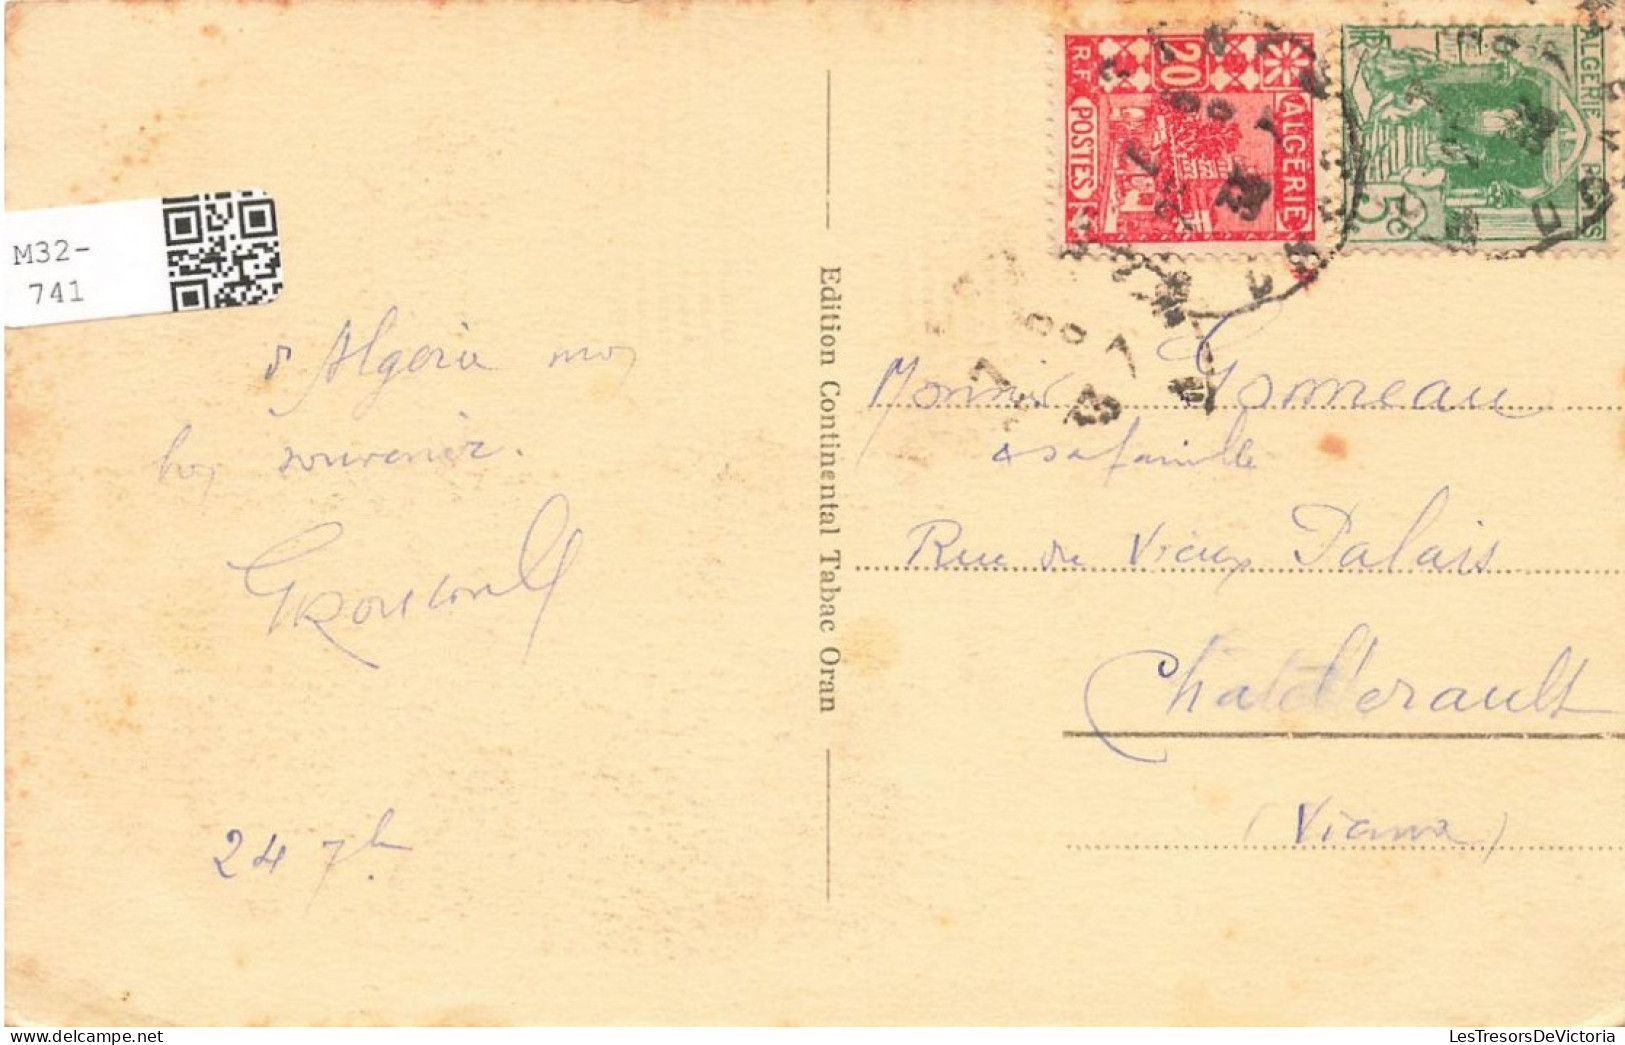 M32-
741
d'Algérie mon
bon souvenir.
24 7bre
Edition Continental Tabac Oran
20
R.F. POSTES
ALGÉRIE
ALGÉRIE POSTES
RF
5c
Monsieur Gomneau
& sa famille
Rue du Vieux Palais
Chatellerault
(Vienne)
LesTresorsDeVictoria